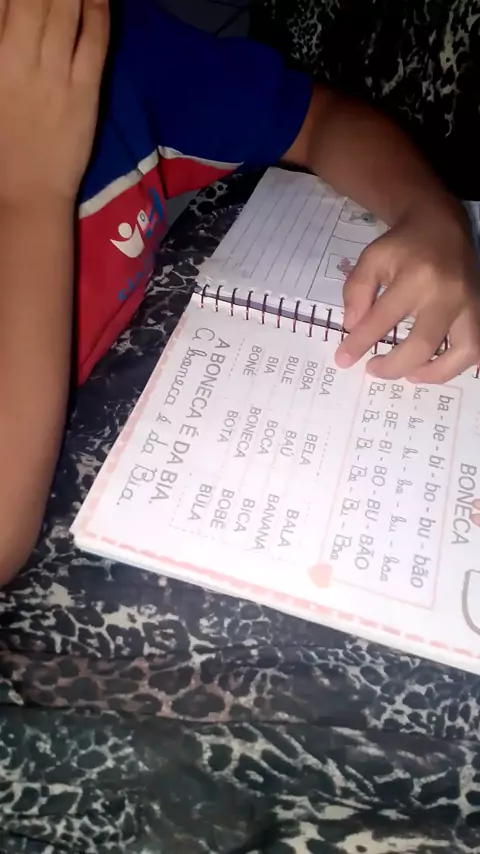 BONECA
ba - be - bi - bo - bu - bão
ba - be - bi - bo - bu - bão
BA - BE - BI - BO - BU - BÃO
Ba - Be - Bi - Bo - Bu - Bão
BOLA BELA BALA
BOBA BAÚ BANANA
BULE BOCA BICA
BIA BONECA BOBE
BONÉ BOTA BULA
A BONECA É DA BIA
A boneca é da Bia.